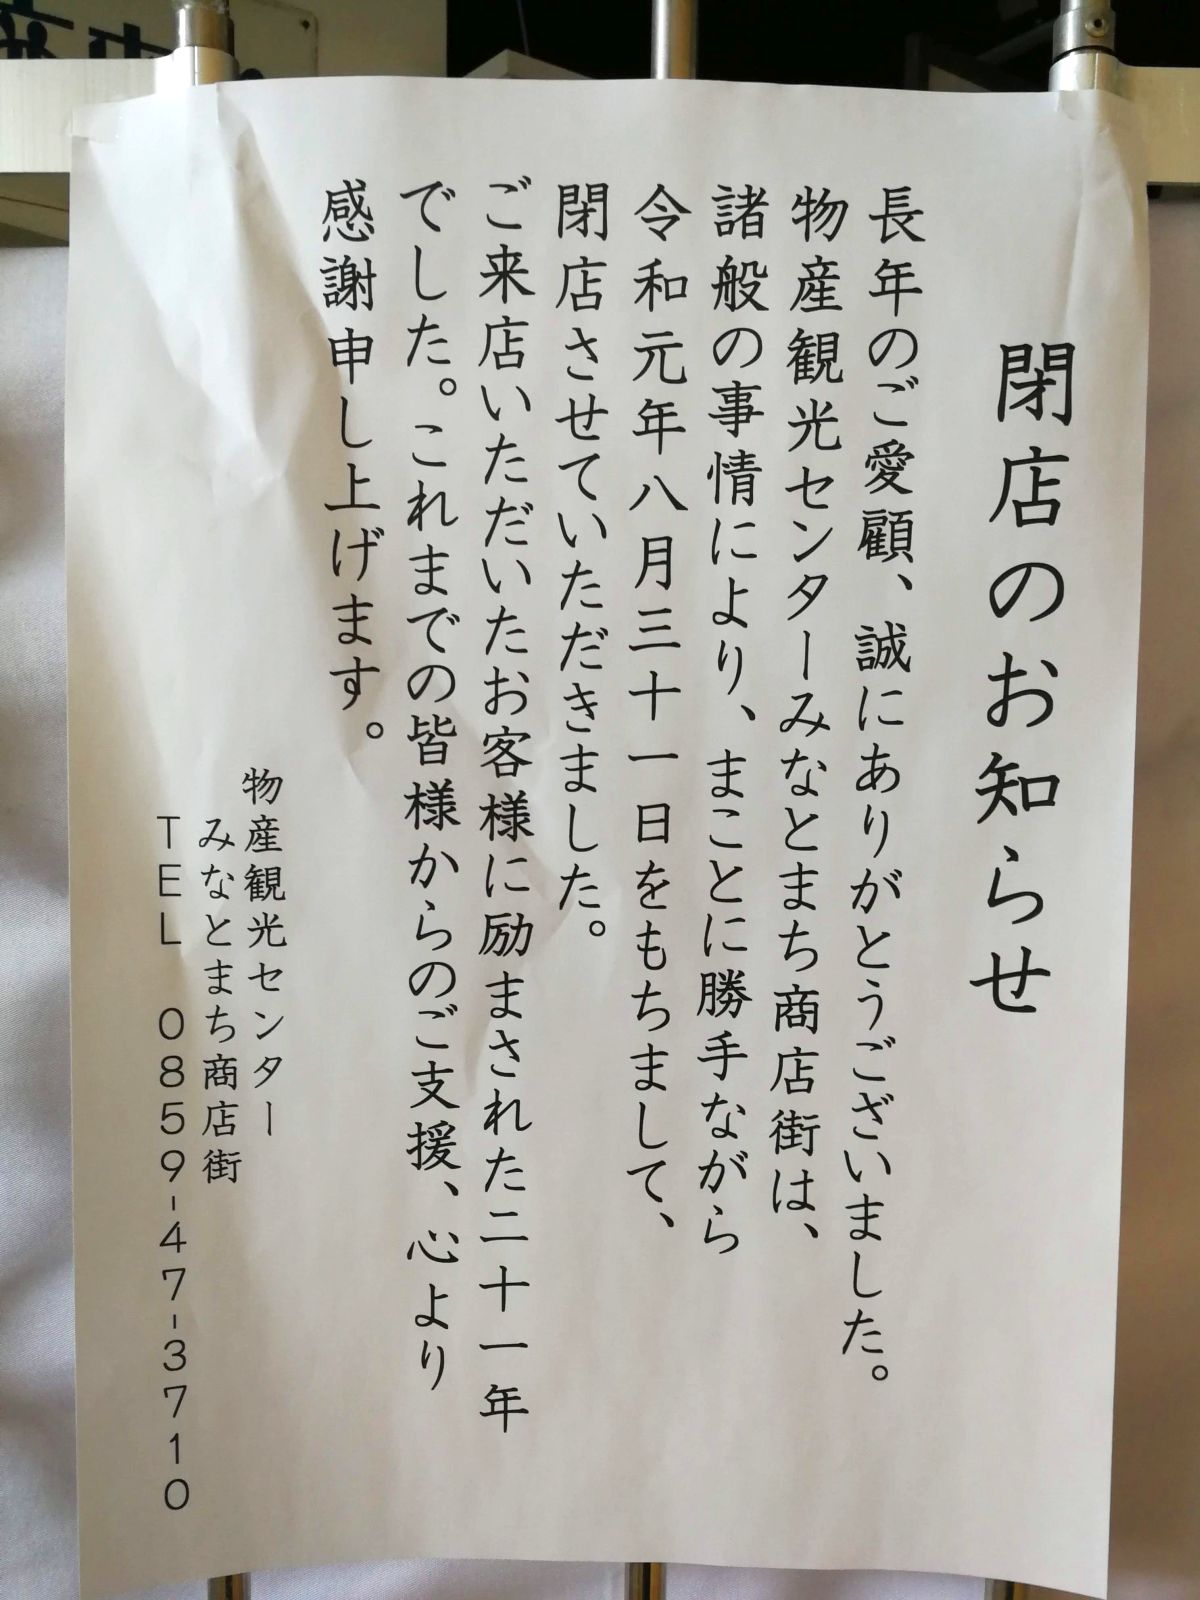 閉店のお知らせ
長年のご愛顧、誠にありがとうございました。
物産観光センターみなとまち商店街は、
諸般の事情により、まことに勝手ながら
令和元年八月三十一日をもちまして、
閉店させていただきました。
ご来店いただいたお客様に励まされた二十一年
でした。これまでの皆様からのご支援、心より
感謝申し上げます。
物産観光センター
みなとまち商店街
TEL 0859-47-3710